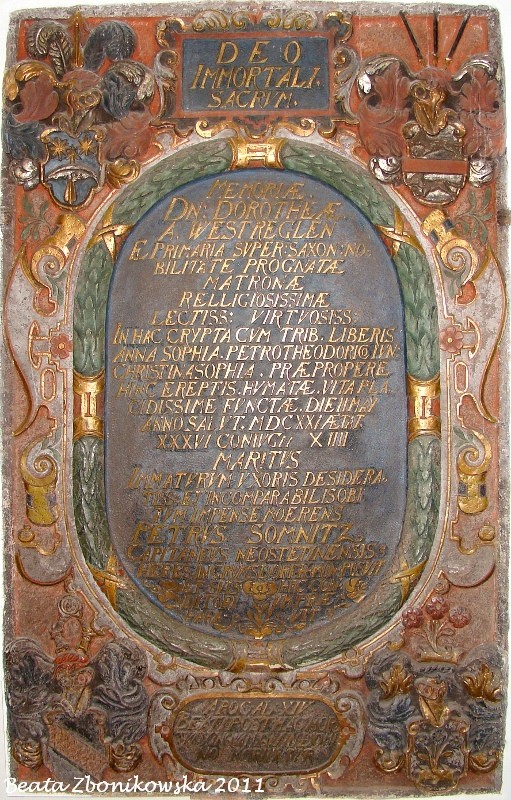 DEO
IMMORTALI.
SACRUM.
MEMORIÆ.
DN: DOROTHEÆ.
A. WESTREGLEN
E. PRIMARIA SUPER: SAXON: NO-
BILITATE PROGNATÆ
MATRONÆ
RELLIGIOSISSIMÆ
LECTISS: VIRTUOSISS:
IN HAC CRYPTA CVM TRIB. LIBERIS
ANNA SOPHIA. PETRO THEODORICO IUN:
CHRISTINA SOPHIA. PRÆPROPERE
HINC EREPTIS. HVMATÆ. VITA PLA
CIDISSIME FUNCTÆ. DIE II MAY
ANNO SALVT. MDCXXI ÆTAT.
XXXVI CONIUGII XIIII
MARITUS
IMMATURUM VXORIS DESIDERA
TISS. ET INCOMPARABILIS OBI
TUM IMPENSE MOERENS
PETRUS SOMNITZ
CAPITANEUS NEOSTETINENSIS
APOCAL. XIV.
Beata Zbonikowska 2011